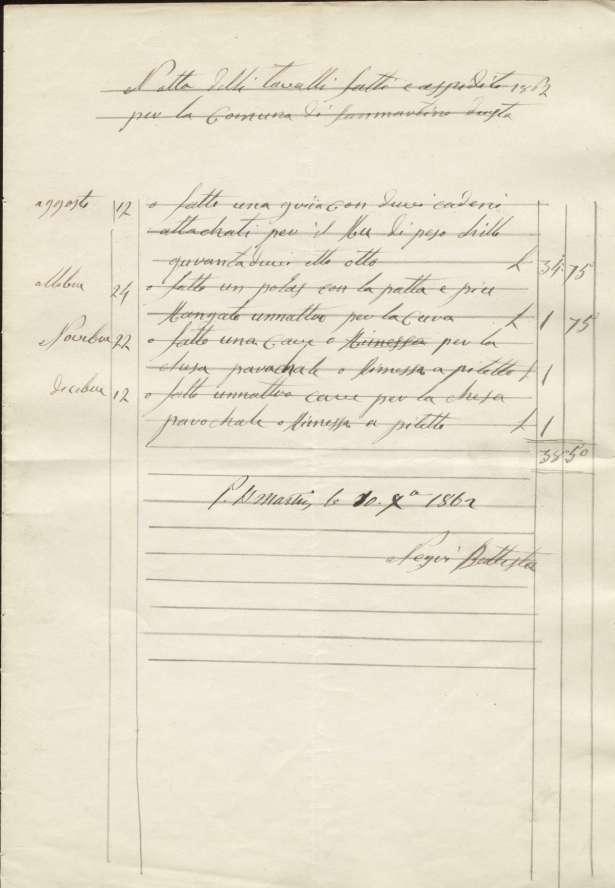 Notta delli Cavalli fatti e 1862
per la Comuna di Sanmartino
aggosto 12 o fatto una con duei cadeni
attachati per il di peso chillo
quvantaduei etto otto L 34: 75
ottobre 24 o fatto un con la patta e
unnattro per la Cuva L 1 75
Novebre 22 o fatto una Cave o Rimessa per la
chesa pavochale o Rimessa a pitetto L 1
Decebre 12 o fatto unnattvo cave per la chesa
pavochale o Rimessa a pitetto L 1
38 50
S. Martin, le 10. Xª 1862
Negvi Battista